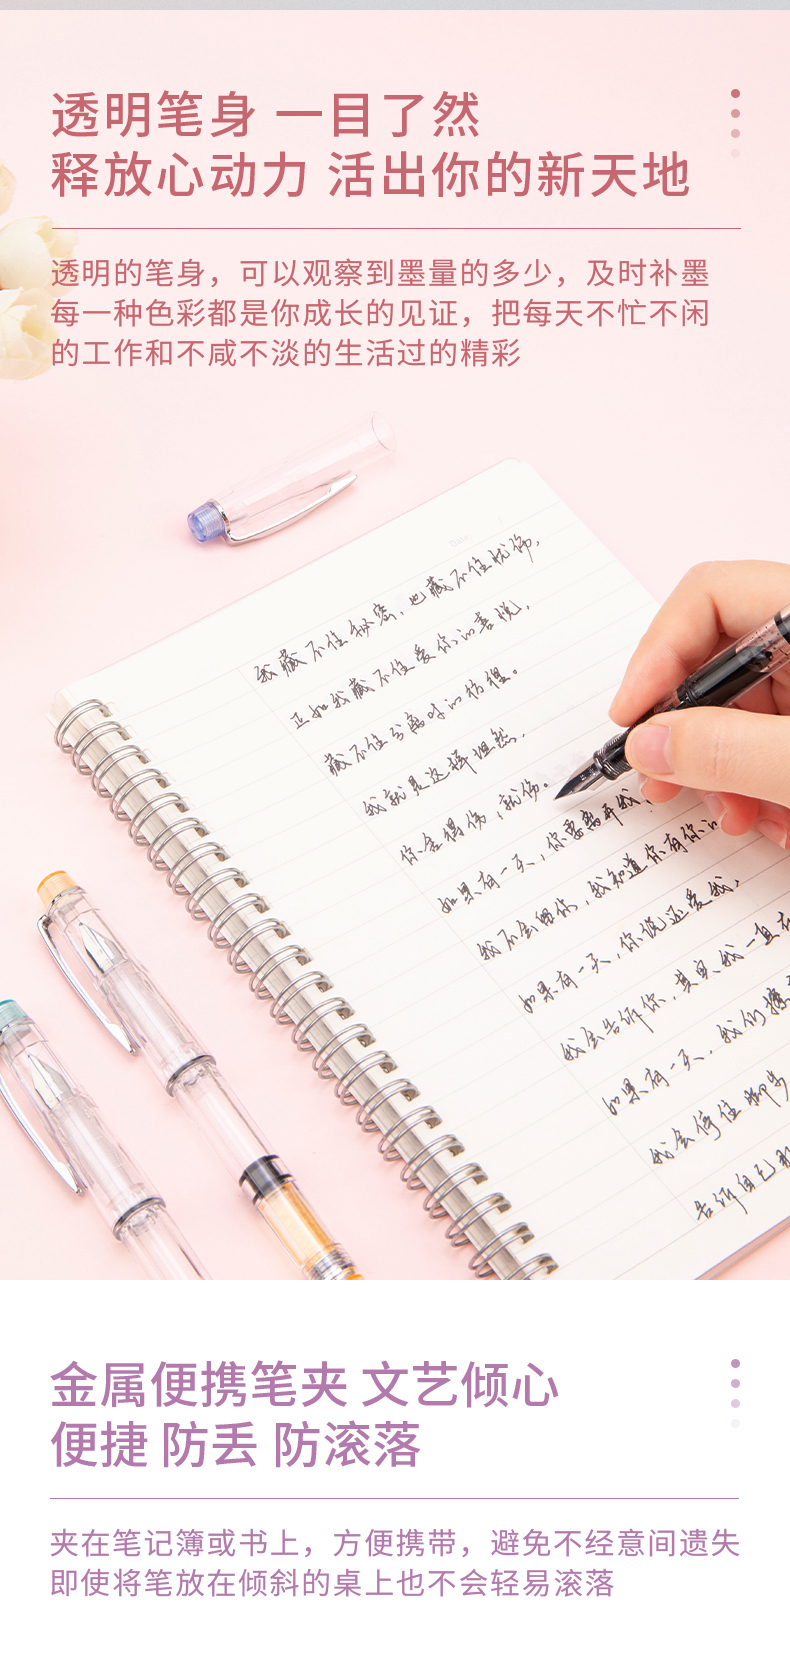 透明笔身 一目了然
释放心动力 活出你的新天地
透明的笔身，可以观察到墨量的多少，及时补墨
每一种色彩都是你成长的见证，把每天不忙不闲
的工作和不咸不淡的生活过的精彩
Date:
我藏不住秘密，也藏不住忧伤，
正如我藏不住爱你的喜悦，
藏不住分离时的彷徨。
我就是这样坦然，
你舍得伤，就伤。
如果有一天，你要离开我，
我不会留你，我知道你有你的
如果有一天，你说还爱我，
我会告诉你，其实我一直在
如果有一天，我们擦
我会停住脚步
告诉自己那
金属便携笔夹 文艺倾心
便捷 防丢 防滚落
夹在笔记簿或书上，方便携带，避免不经意间遗失
即使将笔放在倾斜的桌上也不会轻易滚落